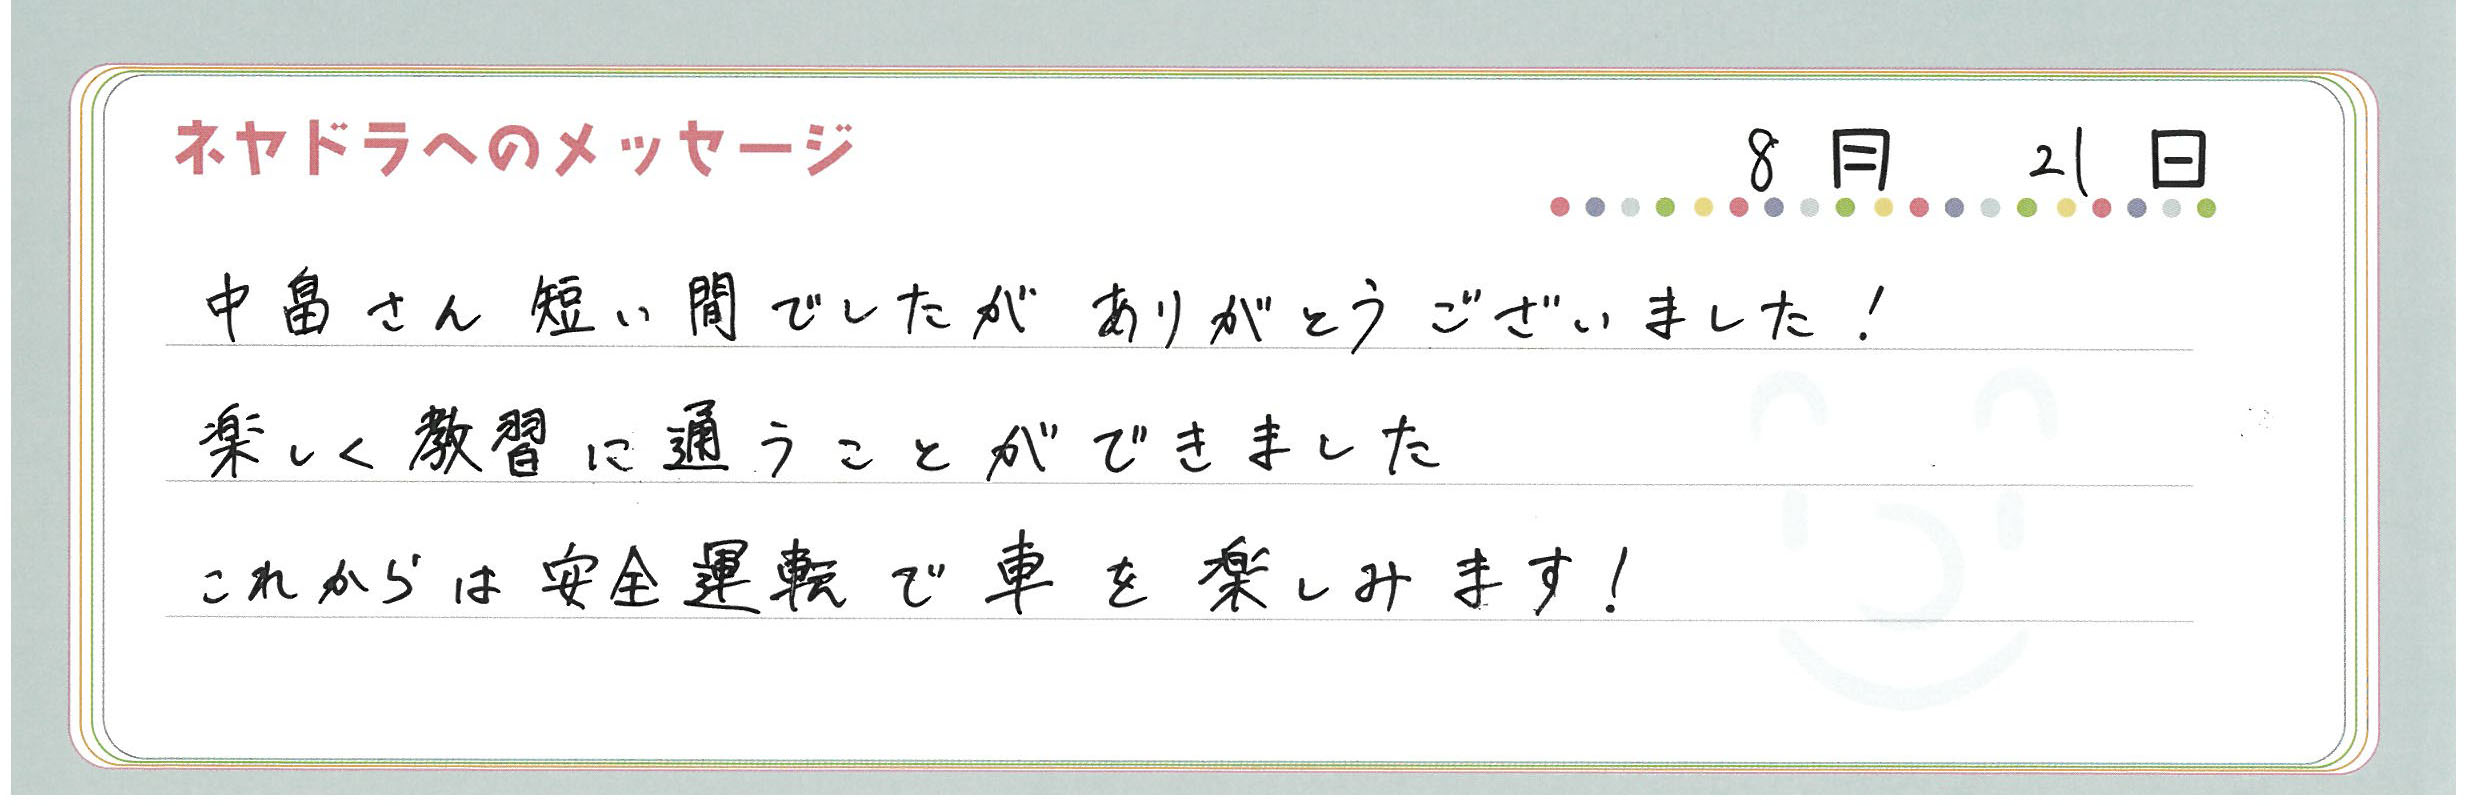 ネヤドラへのメッセージ
8月 21日
中畠さん短い間でしたがありがとうございました!
楽しく教習に通うことができました
これからは安全運転で車を楽しみます!